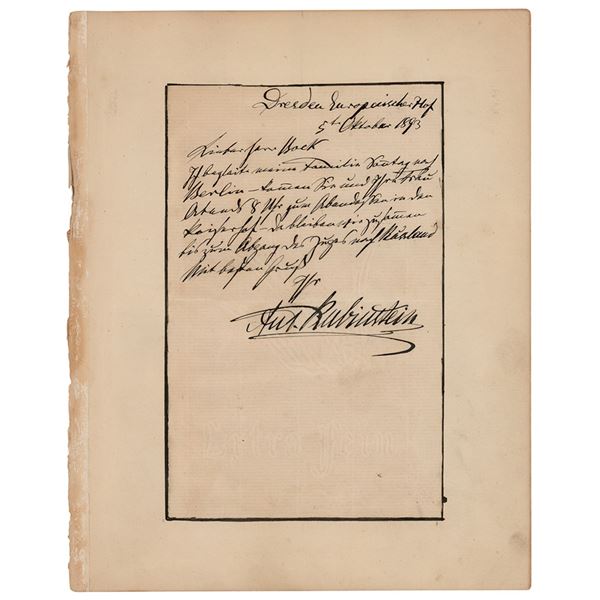 Dresden Europäischer Hof
5t Oktober 1893
Lieber Herr Bock
Ich begleite meine Familie Sonntag nach
Berlin – kommen Sie und Ihre Frau
Abends 8 Uhr zum Abendessen in den
Kaiserhof – da bleiben wir zusammen
bis zum Abgang des Zuges nach Russland
Mit besten Gruß
Ihr
Ant. Rubinstein
Extra Fein